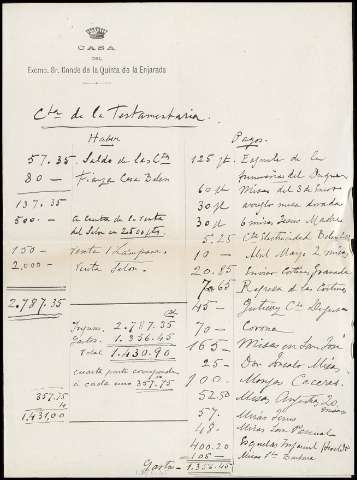 CASA
DEL
Excmo. Sr. Conde de la Quinta de la Enjarada
Cta de la Testamentaria.
Haber
57.35 Saldo de las Ctas
80 — Fianza Casa Belen
137.35
500.— a cuenta de la venta
del Salon en 2500 pts
150 — Venta 1 Lampara
2.000 — Venta Salon.
2.787.35
Ingresos 2.787.35
Gastos. 1.356.45
Total 1.430.90
cuarta parte corresponde
a cada uno 357.75
357.75
4
1.431,00
Pagos.
125 pts. Esquela de la
60 pts Misas del 3 de Enero
30 pts arreglo mesa dorada
30 pts 6 misas Jesús Madre
5.25 Cta Electricidad Belen
10 — Abril Mayo 2 misas
20.85 Envior Cortina Granada
7.65 Regreso de la Cortina
45 — Gutierrez Cta
70 — Corona
165 — Misas en San José
25 — Don Gonzalo Misa.
100. Monjas Caceres.
52.50 Misas 20
57. Misas Jesus
48. Misas San Pascual
400.20 Esquelas Imparcial Heraldo
105 — Misas Sta Barbara
Gastos 1.356.45